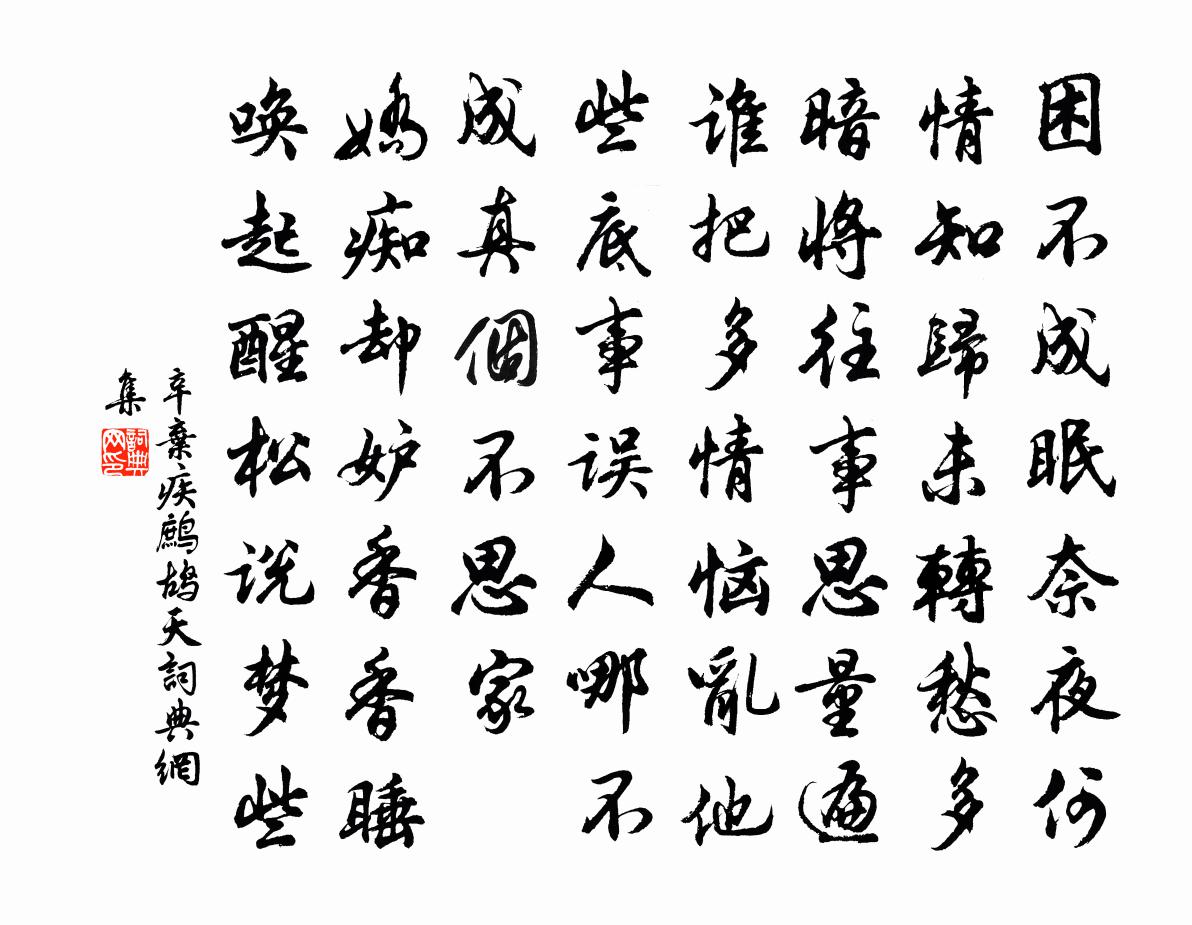 困不成眠奈夜何
情知歸未轉愁多
暗將往事思量遍
谁把多情恼亂他
些底事误人哪不
成真個不思家
嬌痴却妒香香睡
唤起醒松说梦些
辛棄疾鷓鴣天詞典網
集
詞典网印